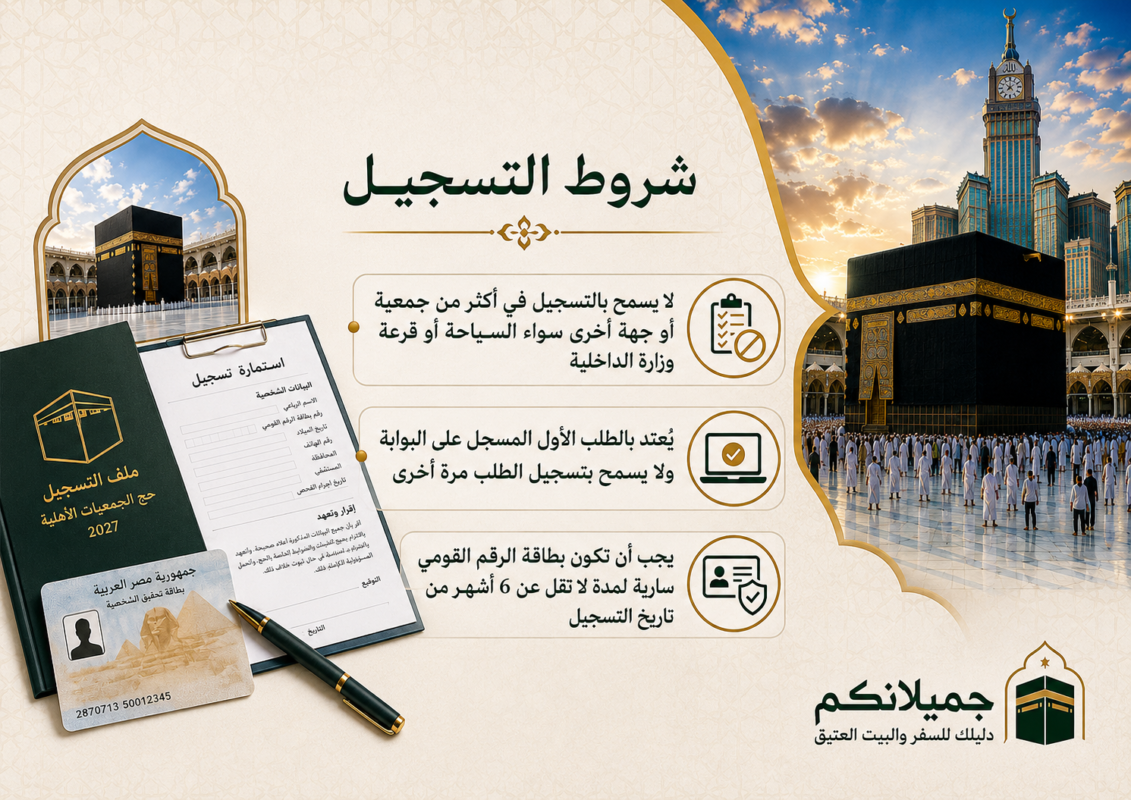 شروط التسجيل
لا يسمح بالتسجيل في أكثر من جمعية
أو جهة أخرى سواء السياحة أو قرعة
وزارة الداخلية
يُعتد بالطلب الأول المسجل على البوابة
ولا يسمح بتسجيل الطلب مرة أخرى
يجب أن تكون بطاقة الرقم القومي
سارية لمدة لا تقل عن 6 أشهر من
تاريخ التسجيل
استمارة تسجيل
البيانات الشخصية
الاسم الرباعي
رقم بطاقة الرقم القومي
تاريخ الميلاد
رقم الهاتف
المحافظة
المستشفى
تاريخ اجراء الفحص
إقرار وتعهد
اقر بأن جميع البيانات المذكورة أعلاه صحيحة، وأتعهد
التوقيع
التاريخ
ملف التسجيل
حج الجمعيات الأهلية
2027
جمهورية مصر العربية
بطاقة تحقيق الشخصية
2870713 50012345
جميلانكم
دليلك للسفر والبيت العتيق